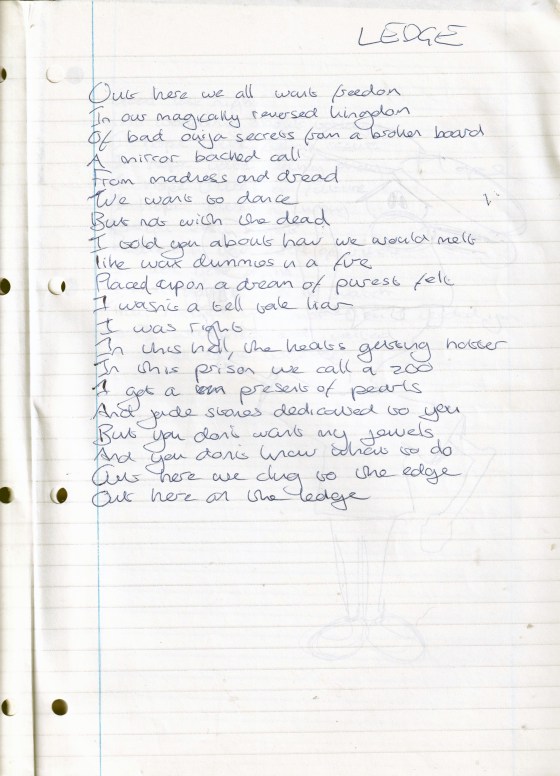 LEDGE
Out here we all want freedom
In our magically reversed kingdom
Of bad ouija secrets from a broken board
A mirror backed call
From madness and dread
We want to dance
But not with the dead
I told you about how we would melt
like wax dummies in a fire
Placed upon a dream of purest felt
I wasn't a tell tale liar
I was right
In this hell, the heats getting hotter
In this prison we call a zoo
I got a present of pearls
And jade stones dedicated to you
But you don't want my jewels
And you don't know what to do
Out here we clug to the edge
Out here on the ledge